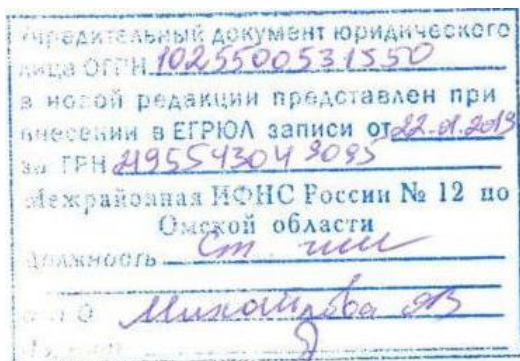 Учредительный документ юридического
лица ОГРН 1025500531550
в новой редакции представлен при
внесении в ЕГРЮЛ записи от 22.01.2019
за ГРН 2195543049095
Межрайонная ИФНС России № 12 по
Омской области
Должность Ст
Ф.И.О Михайлова ЯВ